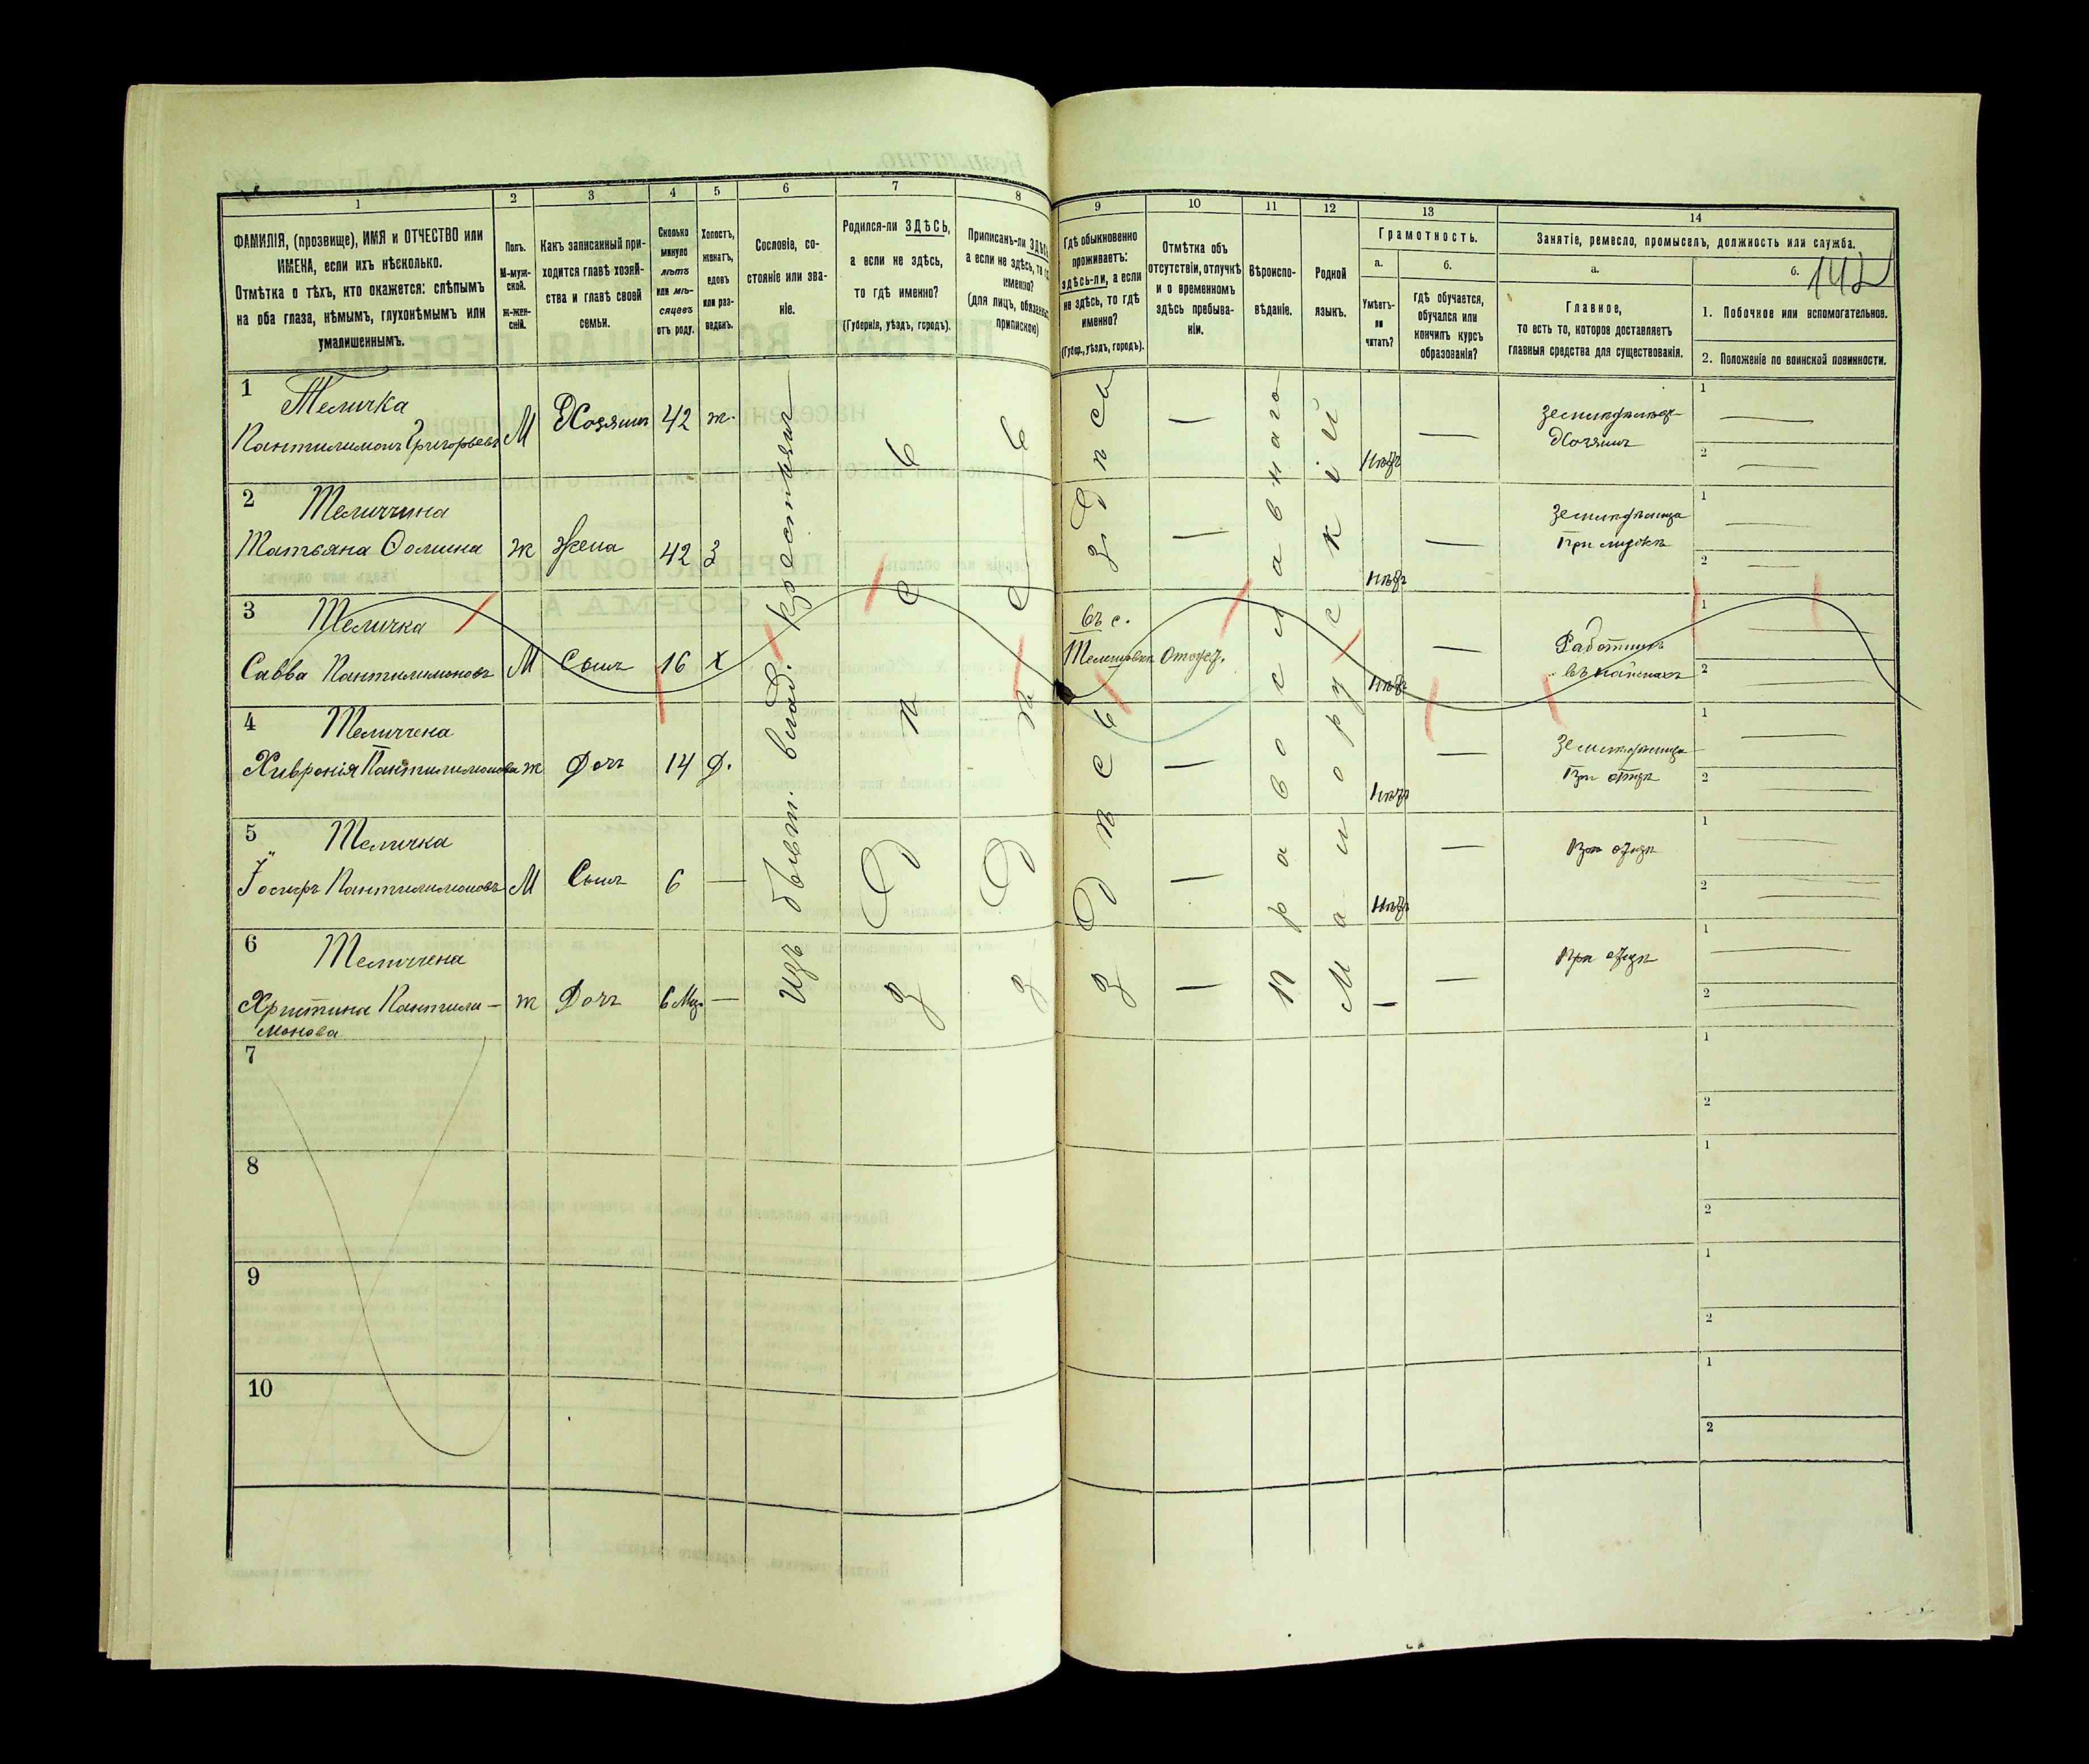 142
1
2
3
4
5
6
7
8
9
10
11
12
13
14
ФАМИЛІЯ, (прозвище), ИМЯ и ОТЧЕСТВО или
ИМЕНА, если ихъ нѣсколько.
Отмѣтка о тѣхъ, кто окажется: слѣпымъ
на оба глаза, нѣмымъ, глухонѣмымъ или
умалишеннымъ.
Полъ.
М-муж-
ской.
Ж-жен-
скій.
Какъ записанный при-
ходится главѣ хозяй-
ства и главѣ своей
семьи.
Сколько
минуло
лѣтъ
или мѣ-
сяцевъ
отъ роду.
Холостъ,
женатъ,
вдовъ
или раз-
веденъ.
Сословіе, со-
стояніе или зва-
ніе.
Родился-ли ЗДѢСЬ,
а если не здѣсь,
то гдѣ именно?
(Губернія, уѣздъ, городъ).
Приписанъ-ли ЗДѢСЬ,
а если не здѣсь, то гдѣ
именно?
(для лицъ, обязанныхъ
припискою)
Гдѣ обыкновенно
проживаетъ:
здѣсь-ли, а если
не здѣсь, то гдѣ
именно?
(Губер., уѣздъ, городъ).
Отмѣтка объ
отсутствіи, отлучкѣ
и о временномъ
здѣсь пребыва-
ніи.
Вѣроиспо-
вѣданіе.
Родной
языкъ.
Грамотность.
а.
Умѣетъ-
ли
читать?
б.
Гдѣ обучается,
обучался или
кончилъ курсъ
образованія?
Занятіе, ремесло, промыселъ, должность или служба.
а.
Главное,
то есть то, которое доставляетъ
главныя средства для существованія.
б.
1. Побочное или вспомогательное.
2. Положеніе по воинской повинности.
1 Теличка
Пантилимонъ Григорьевъ М Хозяинъ 42 ж. — Нѣтъ — Земледѣлецъ
Хозяинъ
2 Теличчина
Татьяна Ѳомина ж Жена 42 З — Нѣтъ — Земледѣлица
При мужѣ
3 Теличка
Савва Пантилимоновъ М Сынъ 16 Х въ с. Отлуч. Нѣтъ — Работникъ
4 Теличчена
Хивронія Пантилимонова ж Дочь 14 Д. — Нѣтъ — Земледѣлица
При отцѣ
5 Теличка
Іосифъ Пантилимоновъ М Сынъ 6 — — Нѣтъ — При отцѣ
6 Теличчена
Христина Пантили-
монова ж Дочь 6 Мѣс. — — — — При отцѣ
Изъ бывш. влад. крестьянъ
здѣсь
здѣсь
здѣсь
здѣсь
Православнаго
Малорусскій
7
8
9
10